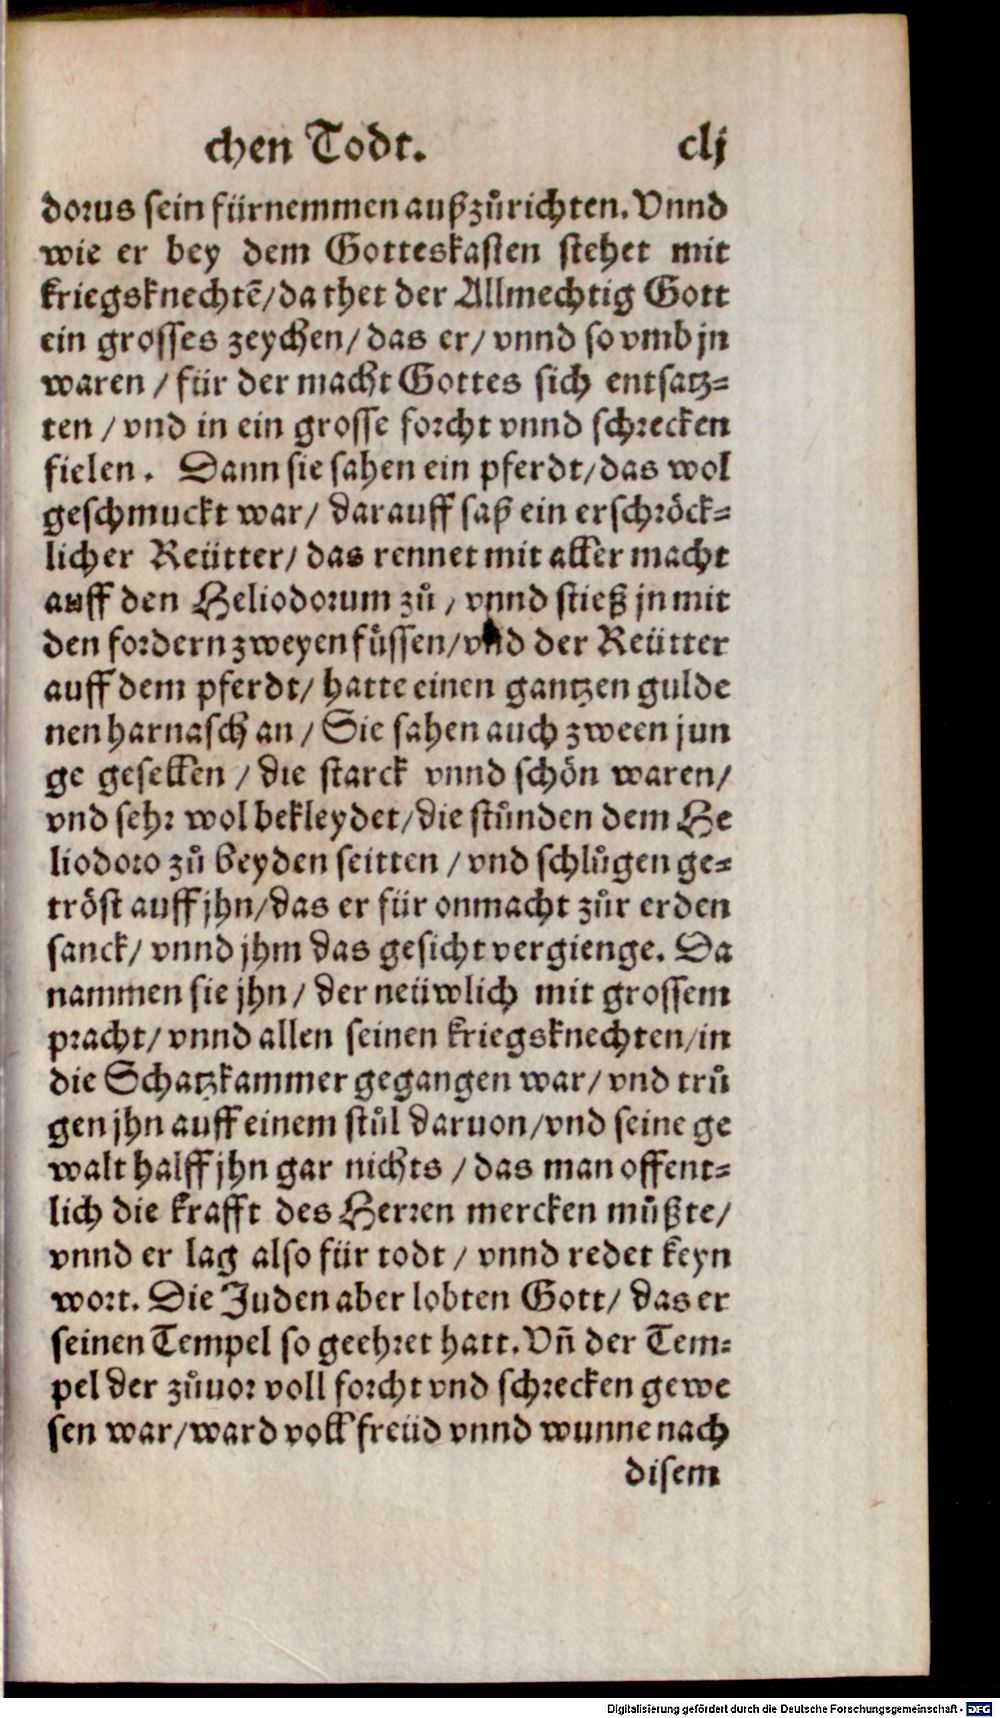 chen Todt. clj
dorus sein fürnemmen außzůrichten. Vnnd
wie er bey dem Gotteskasten stehet mit
kriegsknechtē/ da thet der Allmechtig Gott
ein grosses zeychen/ das er/ vnnd so vmb jn
waren / für der macht Gottes sich entsatz-
ten / vnd in ein grosse forcht vnnd schrecken
fielen. Dann sie sahen ein pferdt/ das wol
geschmuckt war/ darauff saß ein erschröck-
licher Reütter/ das rennet mit aller macht
auff den Heliodorum zů / vnnd stieß jn mit
den fordern zweyen fůssen/ vnd der Reütter
auff dem pferdt/ hatte einen gantzen gulde
nen harnasch an / Sie sahen auch zween jun
ge gesellen / die starck vnnd schön waren/
vnd sehr wol bekleydet/ die stůnden dem He
liodoro zů beyden seitten / vnd schlůgen ge-
tröst auff jhn/ das er für onmacht zůr erden
sanck/ vnnd jhm das gesicht vergienge. Da
nammen sie jhn / der neüwlich mit grossem
pracht/ vnnd allen seinen kriegsknechten/ in
die Schatzkammer gegangen war/ vnd trů
gen jhn auff einem stůl daruon/ vnd seine ge
walt halff jhn gar nichts / das man offent-
lich die krafft des Herren mercken můßte/
vnnd er lag also für todt / vnnd redet keyn
wort. Die Juden aber lobten Gott/ das er
seinen Tempel so geehret hatt. Vñ der Tem-
pel der zůuor voll forcht vnd schrecken gewe
sen war/ ward voll freüd vnnd wunne nach
disem
Digitalisierung gefördert durch die Deutsche Forschungsgemeinschaft - DFG